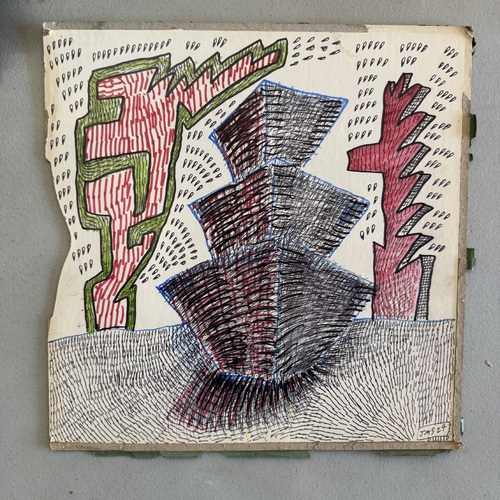 JMS 25